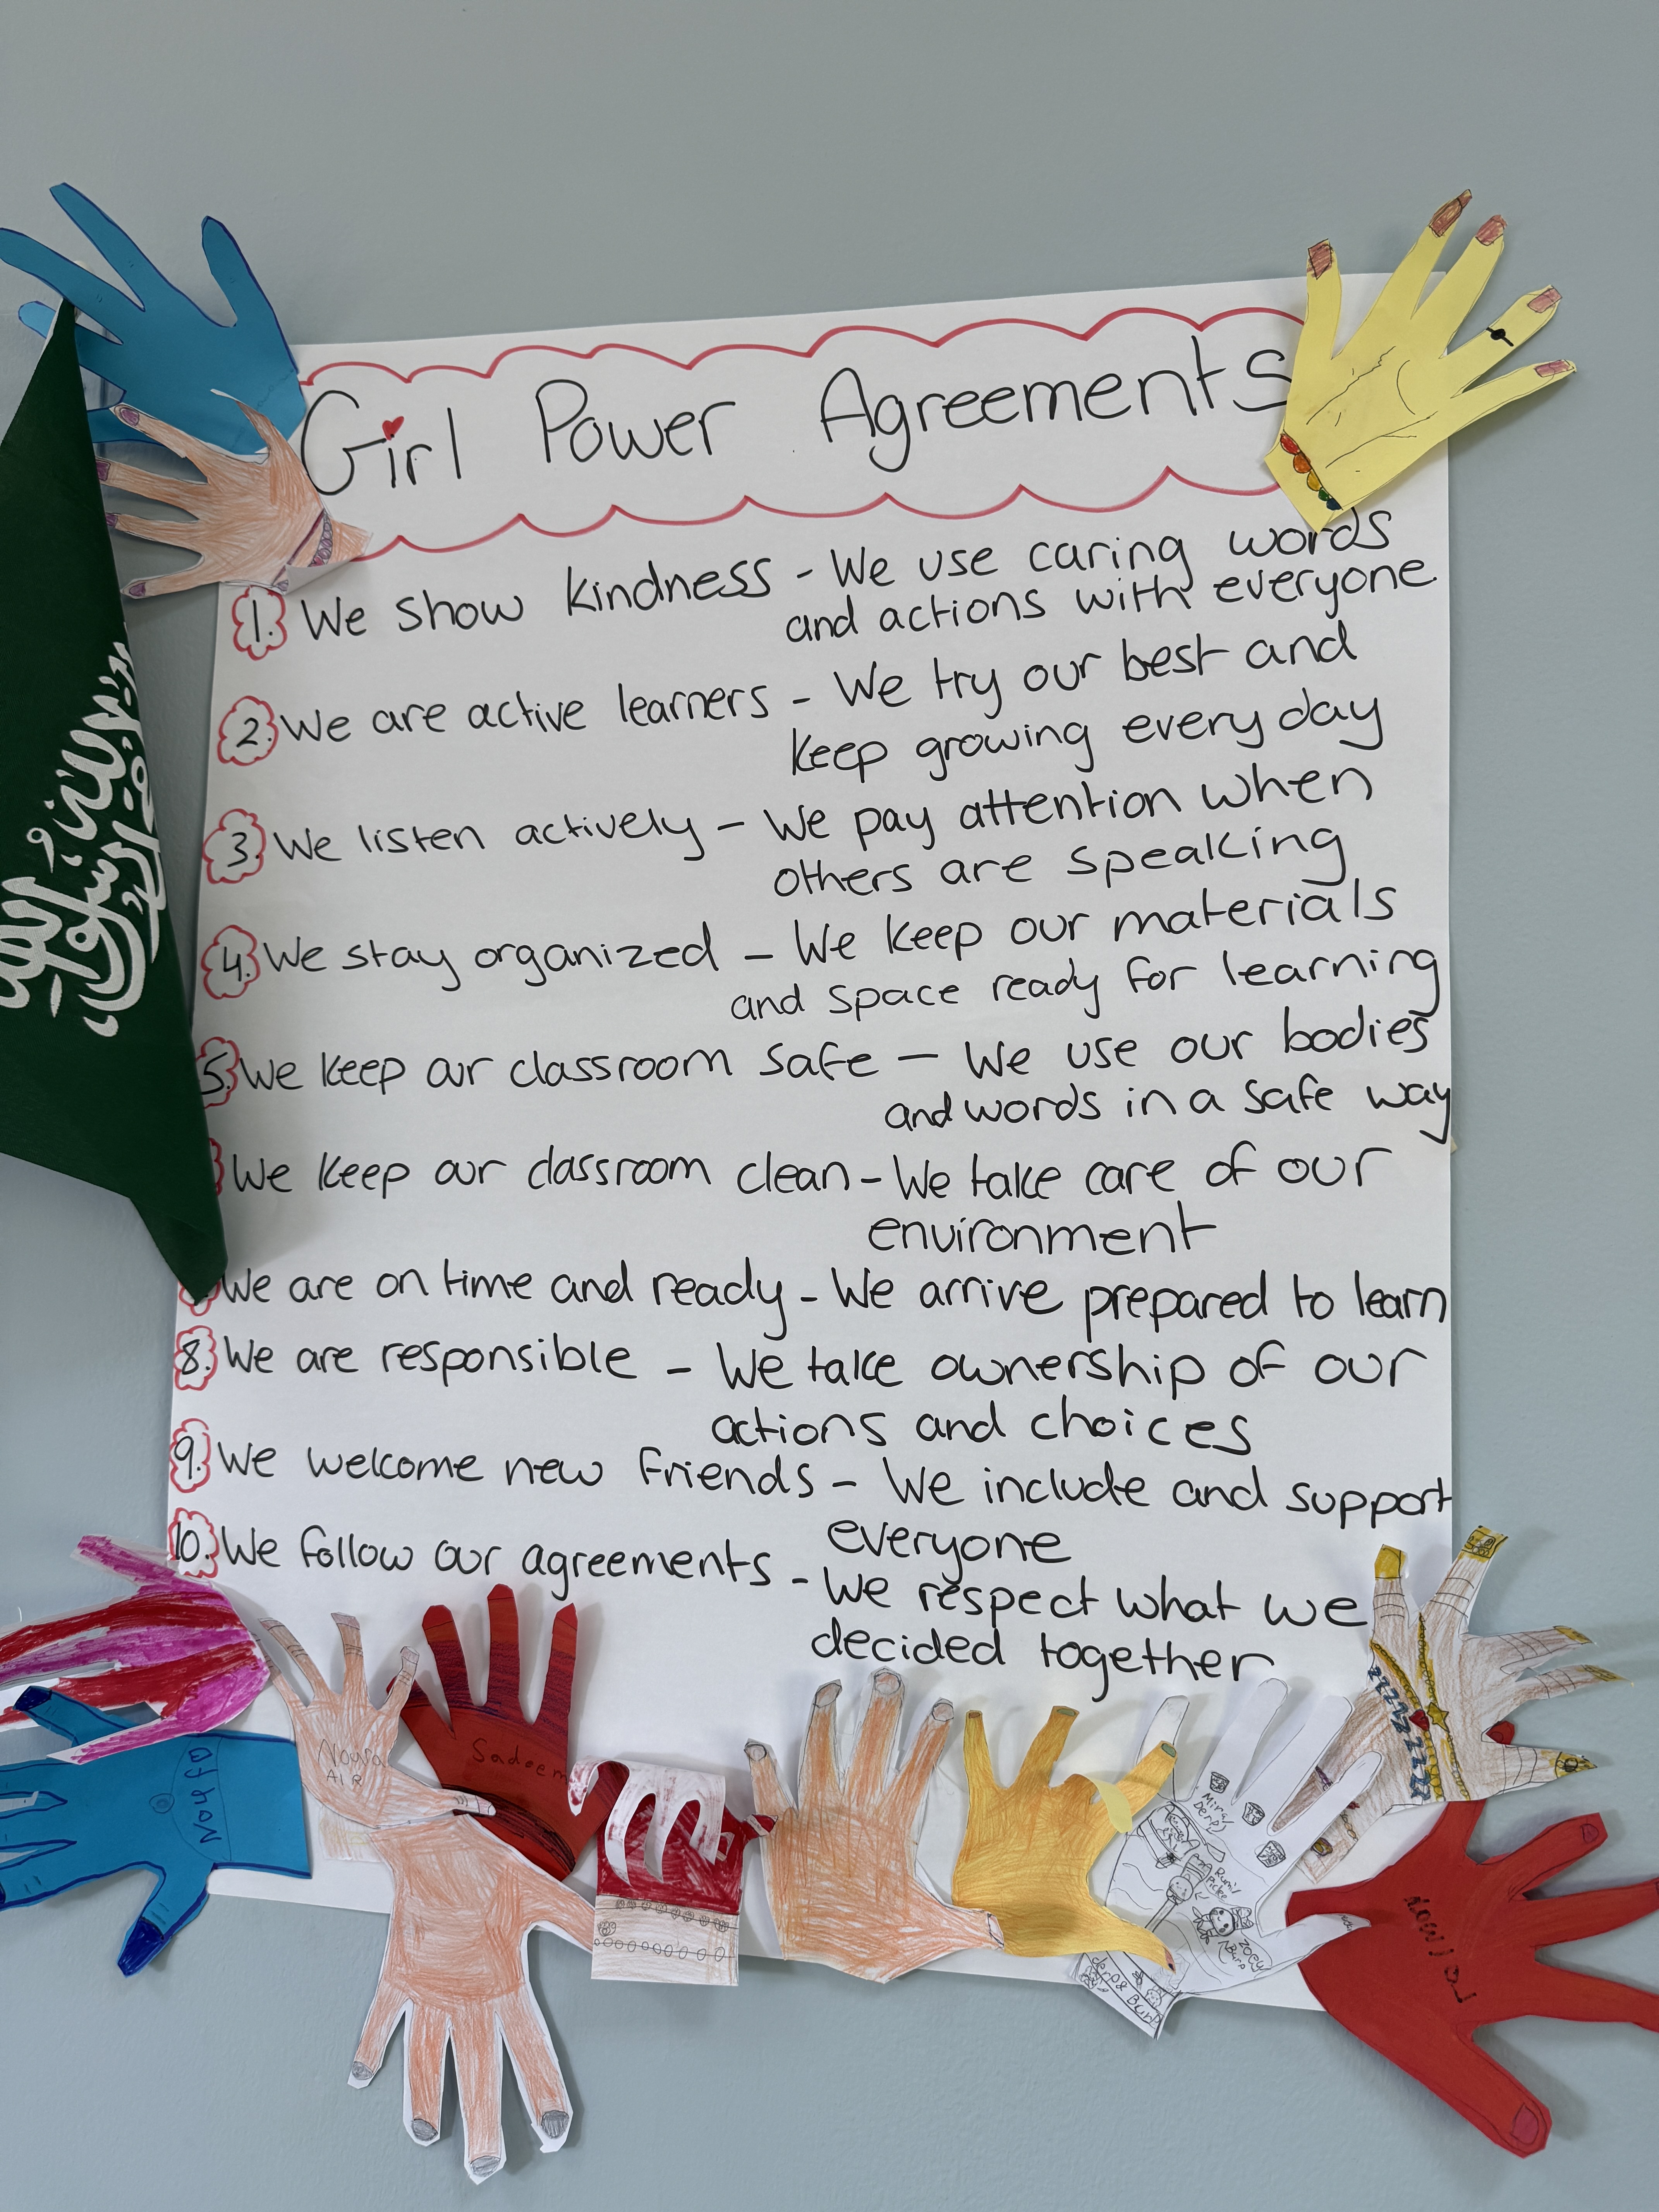 Girl Power Agreements
1. We show kindness - We use caring words
and actions with everyone
2. We are active learners - We try our best and
keep growing every day
3. We listen actively - We pay attention when
others are speaking
4. We stay organized - We keep our materials
and space ready for learning
5. We keep our classroom safe - We use our bodies
and words in a safe way
We keep our classroom clean - We take care of our
environment
We are on time and ready - We arrive prepared to learn
8. We are responsible - We take ownership of our
actions and choices
9. We welcome new friends - We include and support
everyone
10. We follow our agreements - We respect what we
decided together
Sadeem
Noura
Zoey